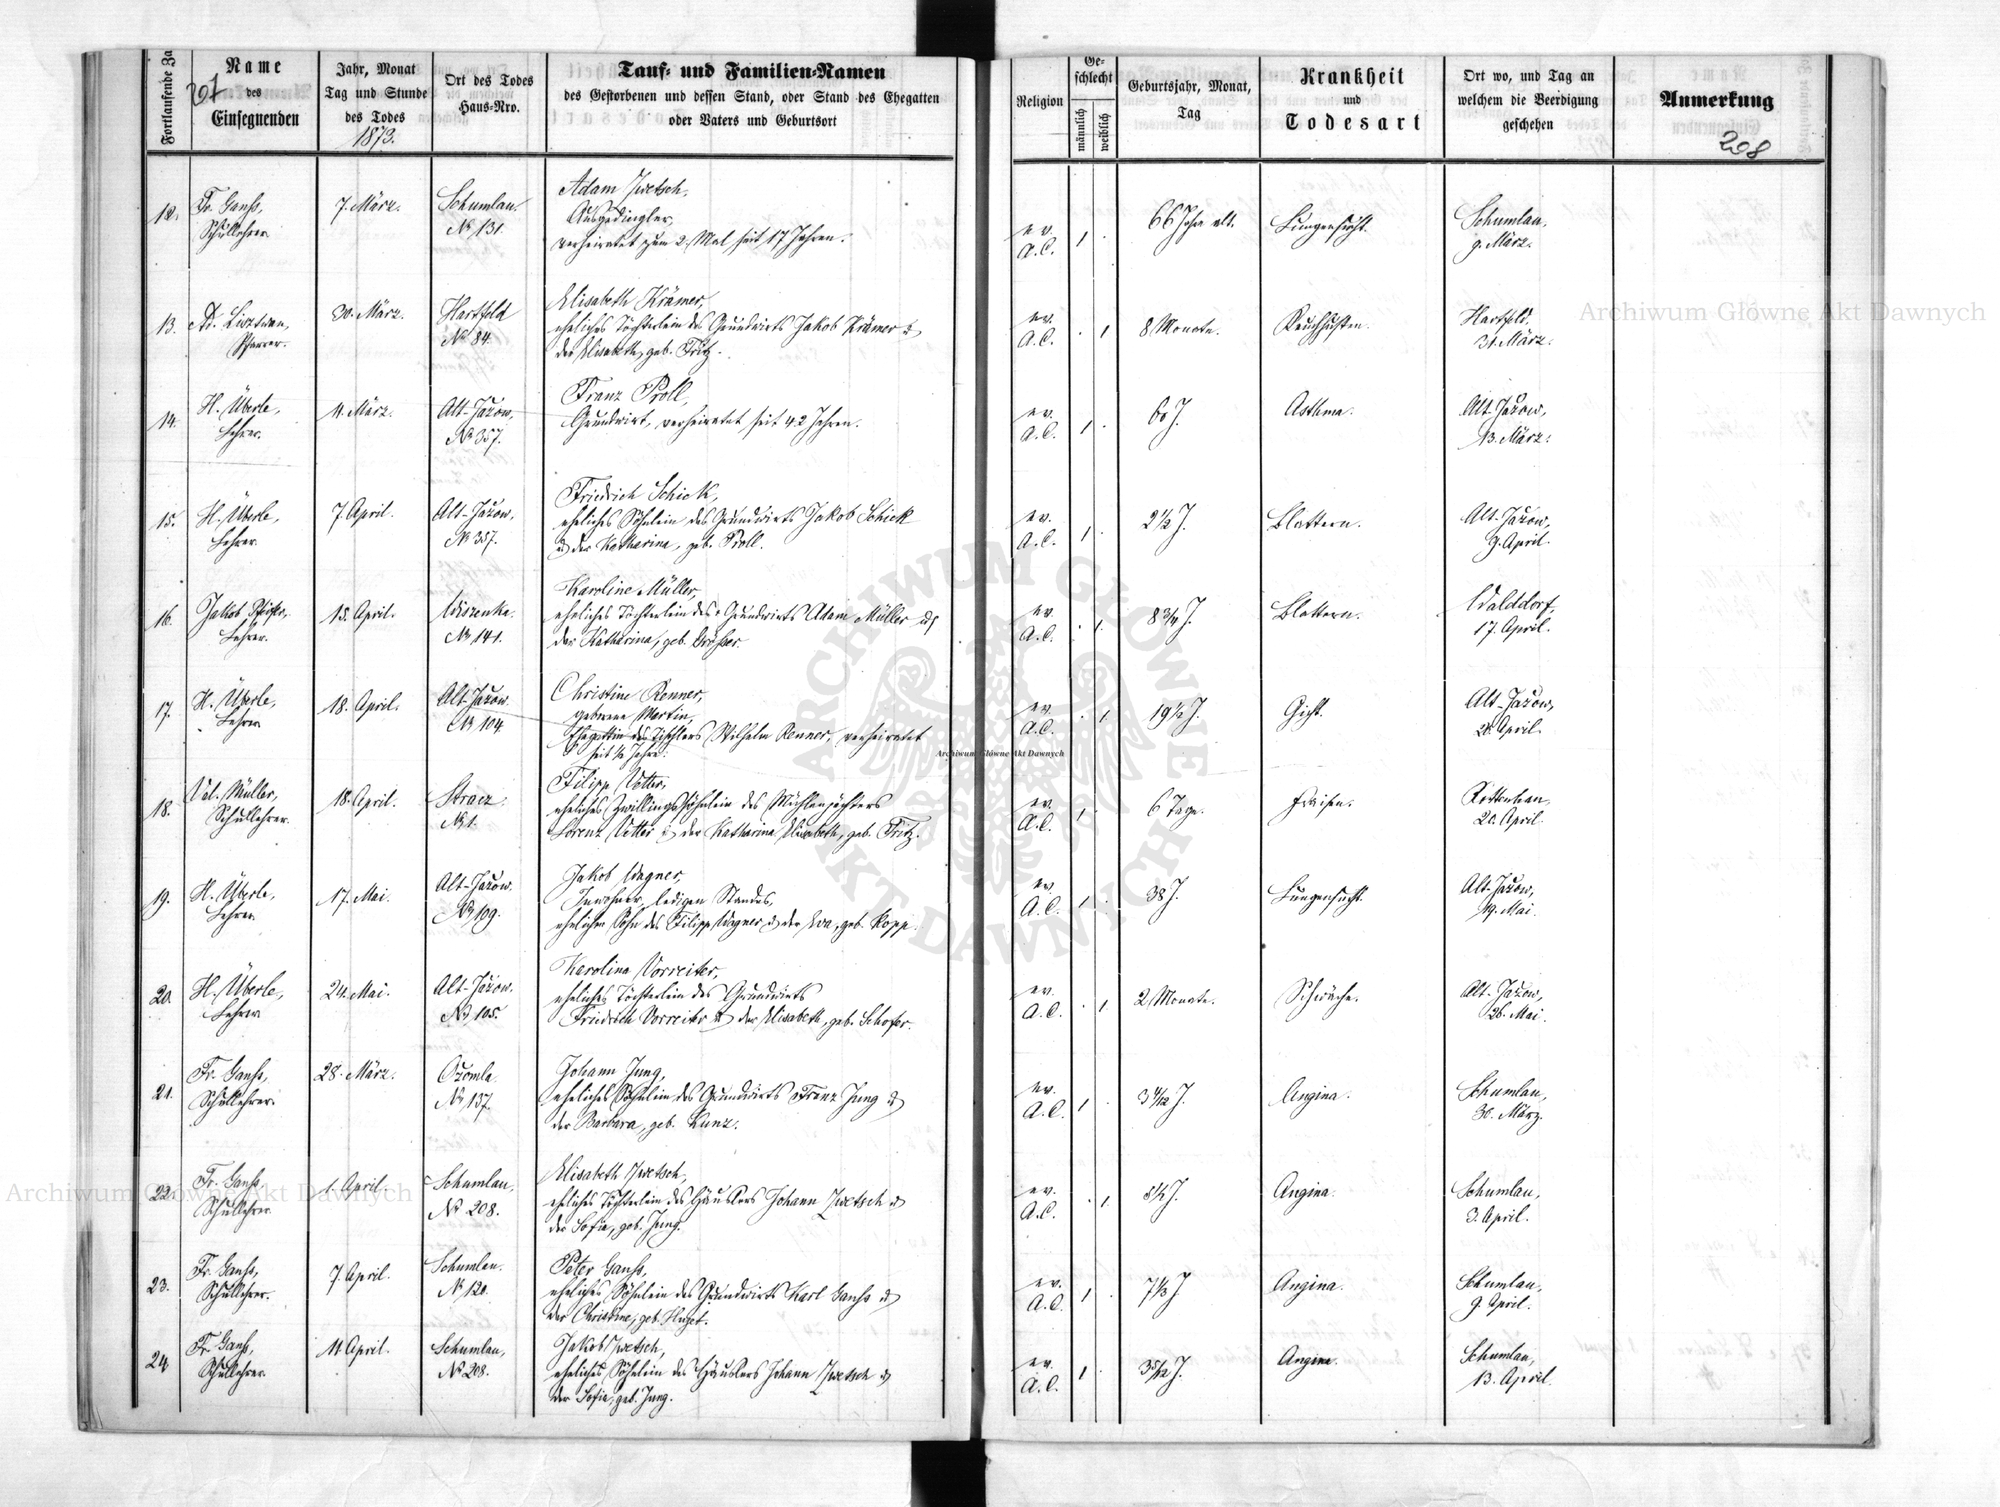 Fortlaufende Za
Name
des
Einsegnenden
207
Jahr, Monat
Tag und Stunde
des Todes
1873.
Ort des Todes
Haus-Nro.
Tauf- und Familien-Namen
des Gestorbenen und dessen Stand, oder Stand des Ehegatten
oder Vaters und Geburtsort
Religion
Ge-
schlecht
männlich
weiblich
Geburtsjahr, Monat,
Tag
Krankheit
und
Todesart
Ort wo, und Tag an
welchem die Beerdigung
geschehen
Anmerkung
208
12.
Fr. Ganss,
Schullehrer
7. März.
Schumlau.
No 131.
Adam Zwetsch.
Ausgedingler.
verheiratet zum 2. Mal seit 17 Jahren.
ev.
A.C.
1
66 Jahre alt.
Lungensucht.
Schumlau,
9. März.
13.
Pfarrer.
30. März.
Hartfeld
No 84.
Elisabeth Krämer,
eheliches Töchterlein des Grundwirts Jakob Krämer u.
der Elisabeth, geb. Fritz.
ev.
A.C.
1
8 Monate.
Keuchhusten.
Hartfeld,
31. März.
14.
H. Überle,
Lehrer.
11. März.
Alt-Jażow,
No 357.
Franz Proll,
Grundwirt, verheiratet seit 42 Jahren.
ev.
A.C.
1
J.
Asthma.
Alt-Jażow,
13. März.
15.
H. Überle,
Lehrer.
7. April.
Alt-Jażow,
No 357.
Friedrich Schick,
eheliches Söhnlein des Grundwirts Jakob Schick
u. der Katharina, geb. Proll.
ev.
A.C.
1
2½ J.
Blattern.
Alt-Jażow,
9. April.
16.
Jakob
Lehrer.
15. April.
Wiszenka.
No 141.
Karoline Müller,
eheliches Töchterlein des Grundwirts Adam Müller u.
der Katharina, geb.
ev.
A.C.
1
8¾ J.
Blattern.
Walddorf,
17. April.
17.
H. Überle,
Lehrer
18. April.
Alt-Jażow.
No 104.
Christine Renner,
geborene Martin,
Ehegattin des Tischlers Wilhelm Renner, verheiratet
seit ½ Jahre.
ev.
A.C.
1
19½ J.
Gicht.
Alt-Jażow,
20. April.
18.
Val. Müller,
Schullehrer.
18. April.
Stracz.
No 1.
Filipp Vetter,
eheliches Zwillingssöhnlein des Mühlenpächters
Lorenz Vetter u. der Katharina Elisabeth, geb. Fritz.
ev.
A.C.
1
6 Tage.
Fraisen.
Rottenhan,
20. April.
19.
H. Überle,
Lehrer
17. Mai.
Alt-Jażow.
No 109.
Jakob Wagner,
Inwohner, ledigen Standes,
ehelicher Sohn des Filipp Wagner u. der Eva, geb. Kopp.
ev.
A.C.
1
38 J.
Lungensucht.
Alt-Jażow,
19. Mai.
20.
H. Überle,
Lehrer
24. Mai.
Alt-Jażow.
No 105.
Karolina Vorreiter,
eheliches Töchterlein des Grundwirts
Friedrich Vorreiter u. der Elisabeth, geb. Schofer.
ev.
A.C.
1
2 Monate.
Schwäche.
Alt-Jażow,
26. Mai.
21.
Fr. Ganss,
Schullehrer.
28. März.
Ożomla.
No 137.
Johann Jung,
eheliches Söhnlein des Grundwirts Franz Jung u.
der Barbara, geb. Kunz.
ev.
A.C.
1
J.
Angina.
Schumlau,
30. März.
22.
Fr. Ganss,
Schullehrer
1. April
Schumlau,
No 208.
Elisabeth Zwetsch,
eheliches Töchterlein des Häuslers Johann Zwetsch u.
der Sofia, geb. Jung.
ev.
A.C.
1
J.
Angina.
Schumlau,
3. April.
23.
Fr. Ganss,
Schullehrer.
7. April.
Schumlau.
No 120.
Peter Ganss,
eheliches Söhnlein des Grundwirts Karl Ganss u.
der Christine, geb. Huget.
ev.
A.C.
1
J.
Angina.
Schumlau,
9. April.
24.
Fr. Ganss,
Schullehrer.
11. April.
Schumlau,
No 208.
Jakob Zwetsch,
eheliches Söhnlein des Häuslers Johann Zwetsch u.
der Sofia, geb. Jung.
ev.
A.C.
1
3 5/12 J.
Angina.
Schumlau,
13. April.
Archiwum Główne Akt Dawnych
ARCHIWUM GŁÓWNE AKT DAWNYCH
Archiwum Główne Akt Dawnych
Archiwum Główne Akt Dawnych